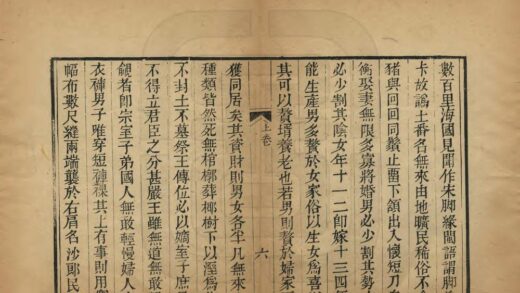 數百里海國見聞作宋脚緣閩語謂脚
卡故譌土番名無來由地曠民稀俗不
猪與回回同鬚止留下頷出入懷短刀
衞娶妻無限多寡將婚男必少割其勢
必少割其陰女年十一二卽嫁十三四
能生產男多贅於女家俗以生女爲喜
其可以贅壻養老也若男則贅於婦家
上卷
六
獲同居矣其資財則男女各半凡無來
種類皆然死無棺槨葬椰樹下以溼爲
不封土不墓祭王傳位必以嫡室子庶
不得立君臣之分甚嚴王雖無道無敢
覦者卽宗室子弟國人無敢輕慢婦人
衣褲男子唯穿短褲裸其上有事則用
幅布數尺縫兩端襲於右肩名沙郞民